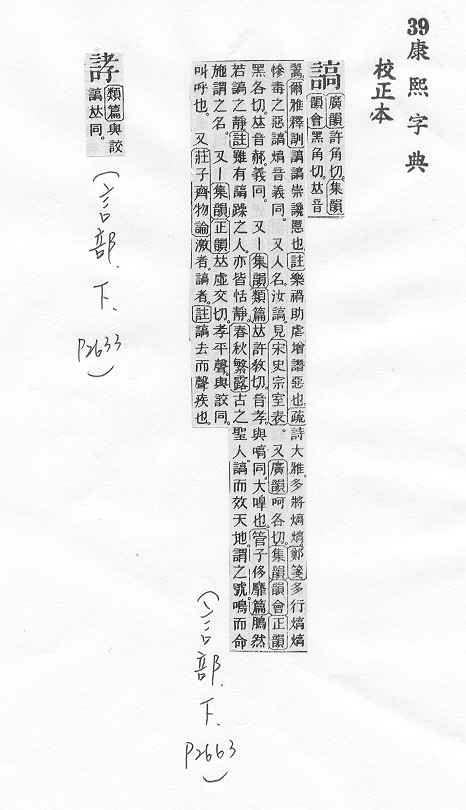 39 康熙字典
校正本
謞
廣韻許角切。集韻
韻會黑角切。𠀤音
翯。爾雅釋訓謞謞崇讒慝也註樂禍助虐增譖惡也疏詩大雅多將熇熇鄭箋多行熇熇
慘毒之惡謞熇音義同。 又人名。汝謞見宋史宗室表。 又廣韻呵各切。集韻韻會正韻
黑各切𠀤音郝義同。 又一集韻類篇𠀤許敎切。音孝與嗃同。大嘷也。管子侈靡篇鵬然
若謞之靜註雖有謞躁之人亦皆恬靜。春秋繁露古之聖人謞而效天地。謂之號。鳴而命
施謂之名。 又一集韻正韻𠀤虛交切。孝平聲。與詨同。
叫呼也。 又莊子齊物論激者。謞者。註謞去而聲疾也。
(言部.下.P2663)
誟
類篇與詨
謞𠀤同。
(言部.下.P2633)